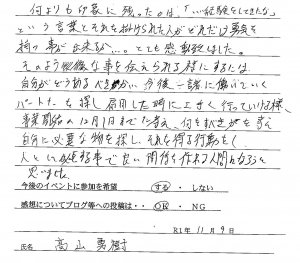 何よりも印象に残ったのは、「いい経験をしてきたな」
という言葉とそれを掛けられた人がどれだけ勇気を
持つ事が出来るか…。とても感動致しました。
そのような
自分がどうあるべきかい 今後一諸に働いていく
パートナーを探し 雇用した時に上手く行っていける様、
事業開始の12月1日まで 何をすべきかを考え
自分に必要な物を探し、それを得る行動をし
人といい仕事で良い関係を作れる人間になろうと
思いました。
今後のイベントに参加を希望 する ・ しない
感想についてブログ等への投稿は‥ OK ・ NG
R1年 11月 9日
氏名 高山